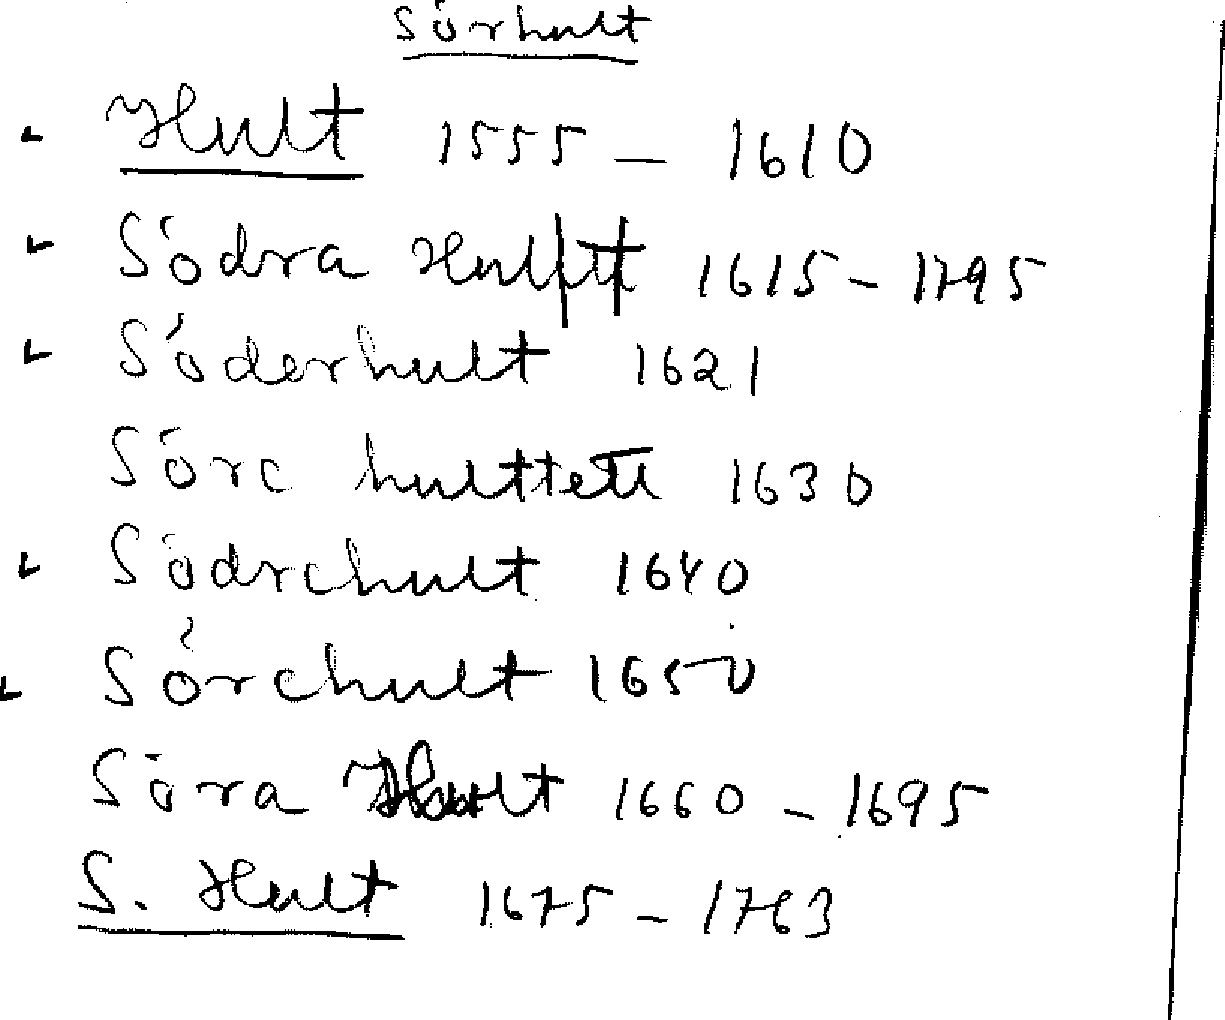 Sörhult
Hult 1555 – 1610
Södra Hultt 1615 – 1795
Söderhult 1621
Söre hulttett 1630
Södrehult 1640
Sörehult 1650
Söra Hult 1660 – 1695
S. Hult 1675 – 1763